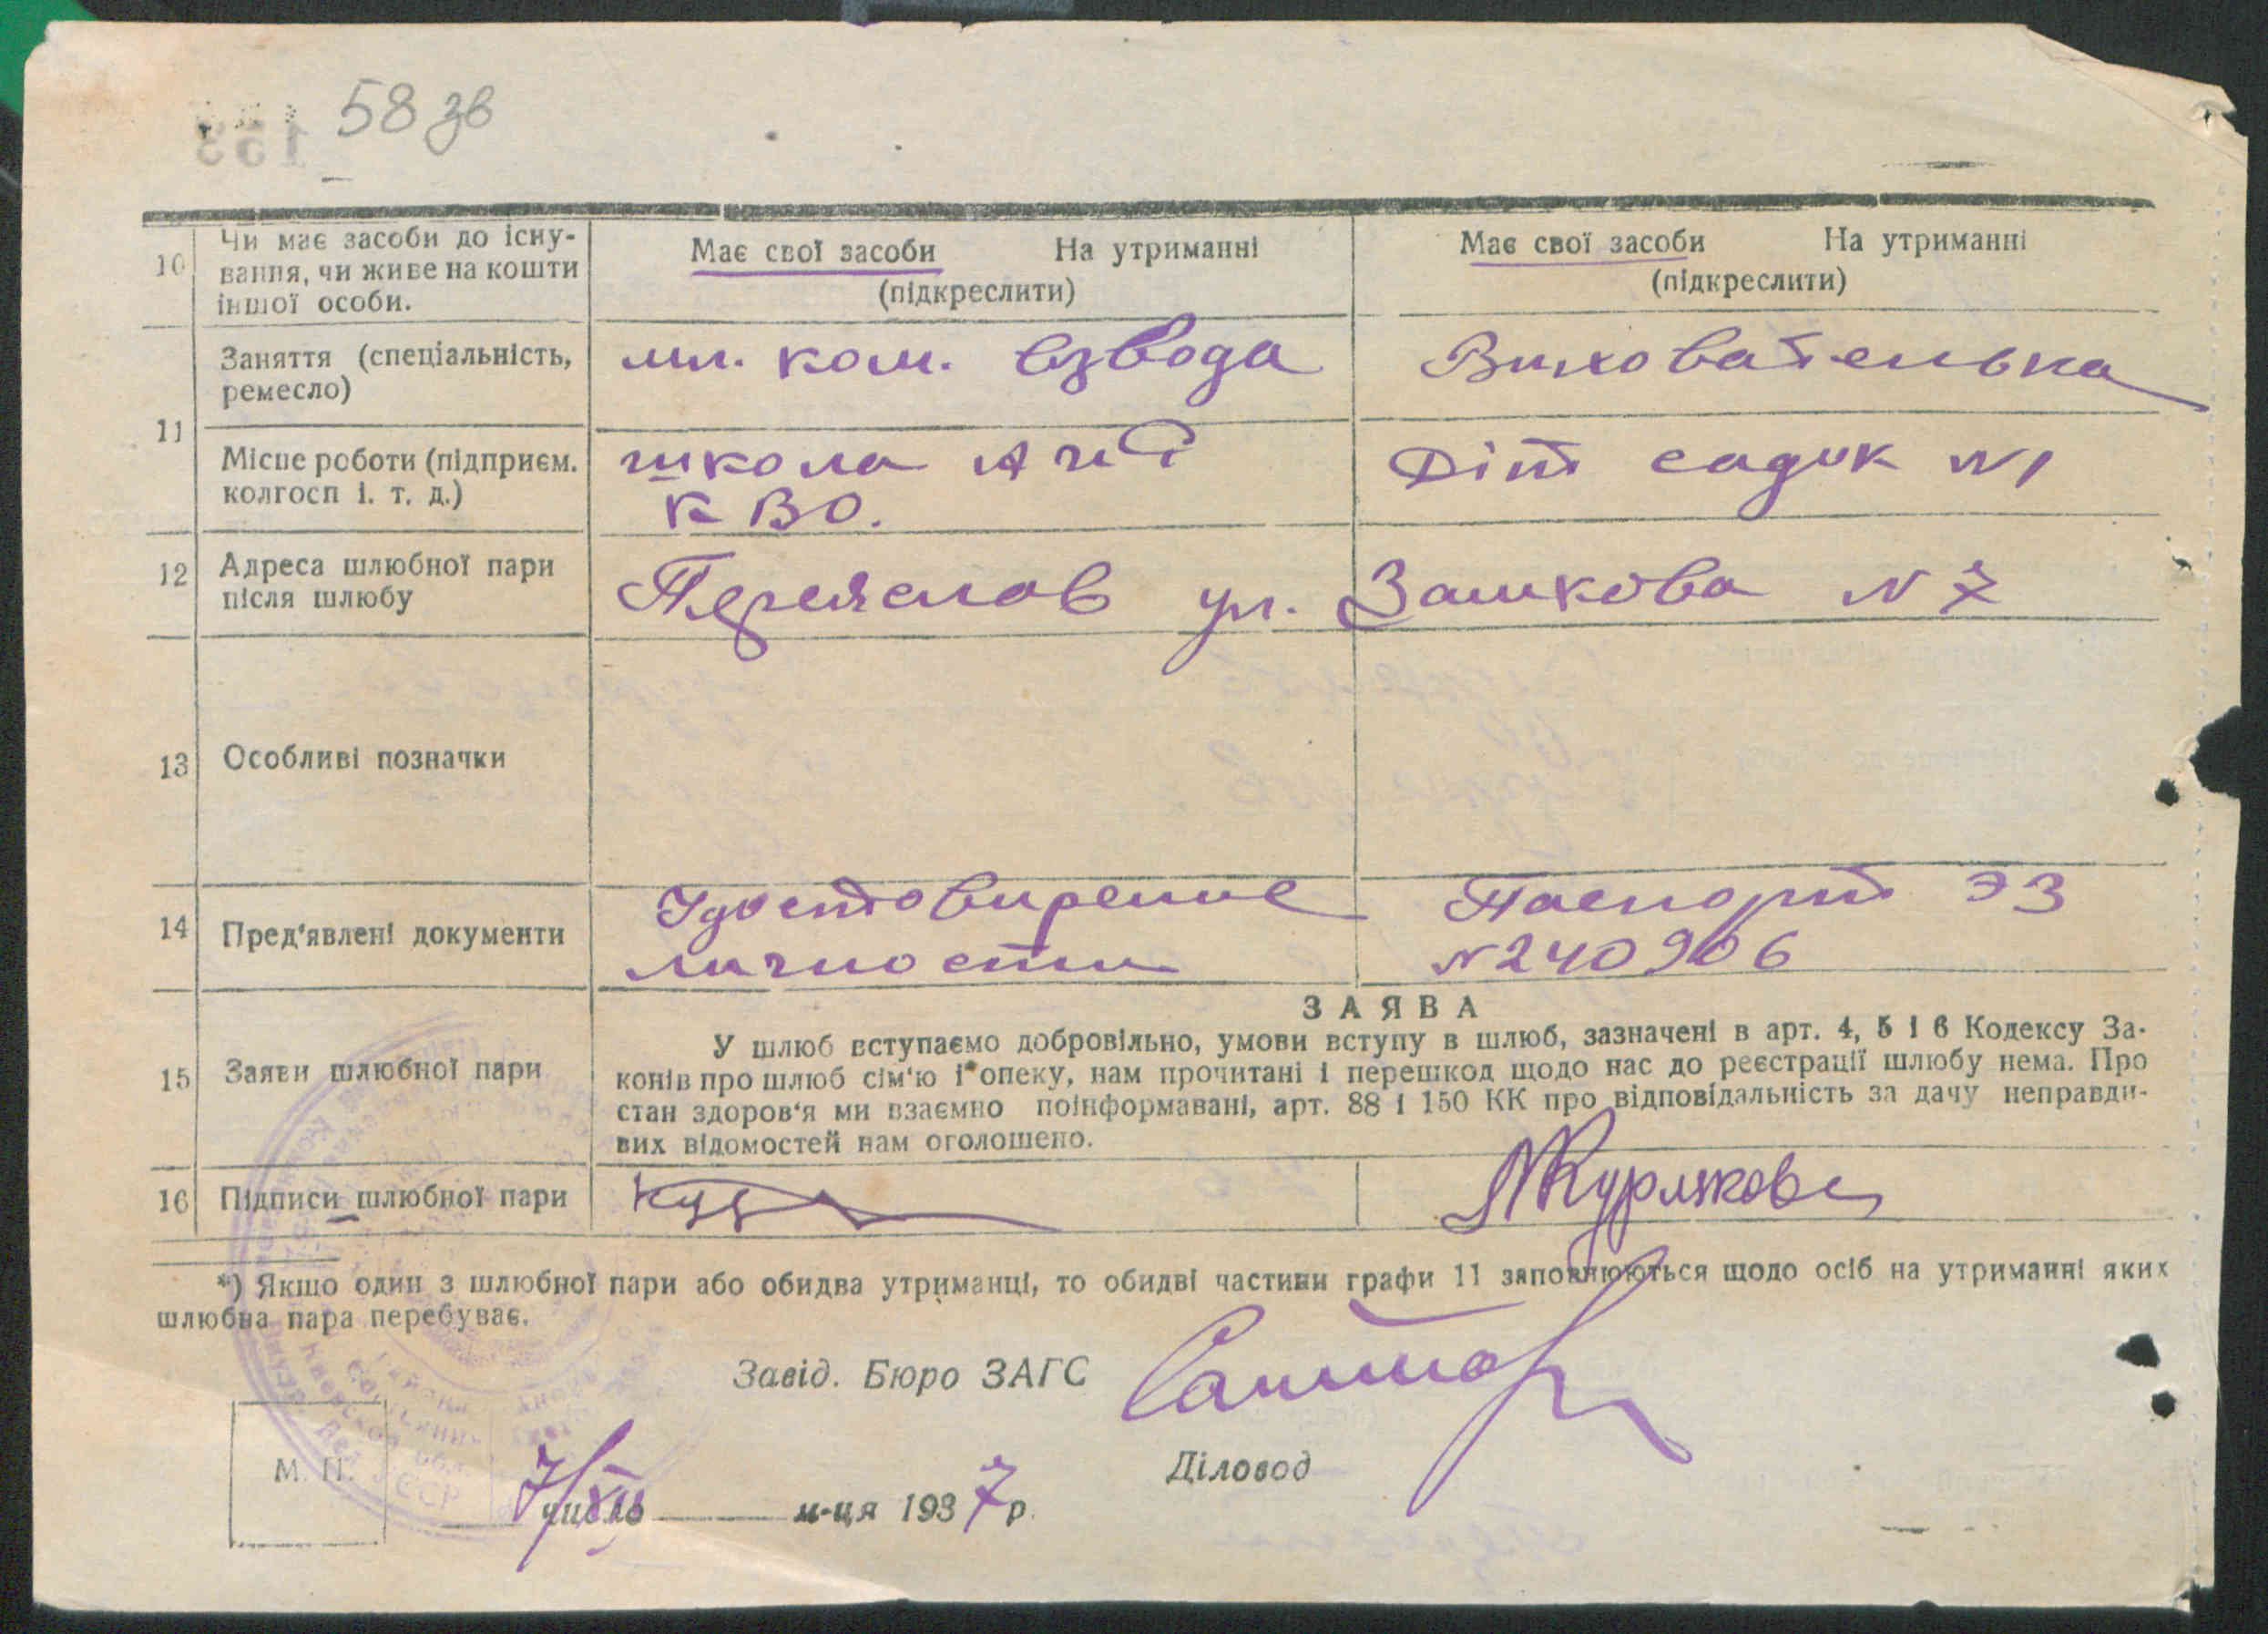 58 зв
10 Чи має засоби до існу-
вання, чи живе на кошти
іншої особи.
Має свої засоби На утриманні
(підкреслити)
Має свої засоби На утриманні
(підкреслити)
11
Заняття (спеціальність,
ремесло)
мл. ком. взвода
Вихователька
Місце роботи (підприєм.
колгосп і. т. д.)
школа
КВО.
Діт садик №1
12 Адреса шлюбної пари
після шлюбу
Переяслов ул. Зашкова № 7
13 Особливі позначки
14 Пред'явлені документи
Удостовирение
личности
Паспорт ЭЗ
№240906
15 Заяви шлюбної пари
ЗАЯВА
У шлюб вступаємо добровільно, умови вступу в шлюб, зазначені в арт. 4, 5 і 6 Кодексу За-
конів про шлюб сім'ю і опеку, нам прочитані і перешкод щодо нас до реєстрації шлюбу нема. Про
стан здоров'я ми взаємно поінформавані, арт. 88 і 150 КК про відповідальність за дачу неправди-
вих відомостей нам оголошено.
16 Підписи шлюбної пари
*) Якщо один з шлюбної пари або обидва утриманці, то обидві частини графи 11 заповнюються щодо осіб на утриманні яких
шлюбна пара перебуває.
Завід. Бюро ЗАГС
Діловод
М. П.
7/XII число м-ця 1937 р.